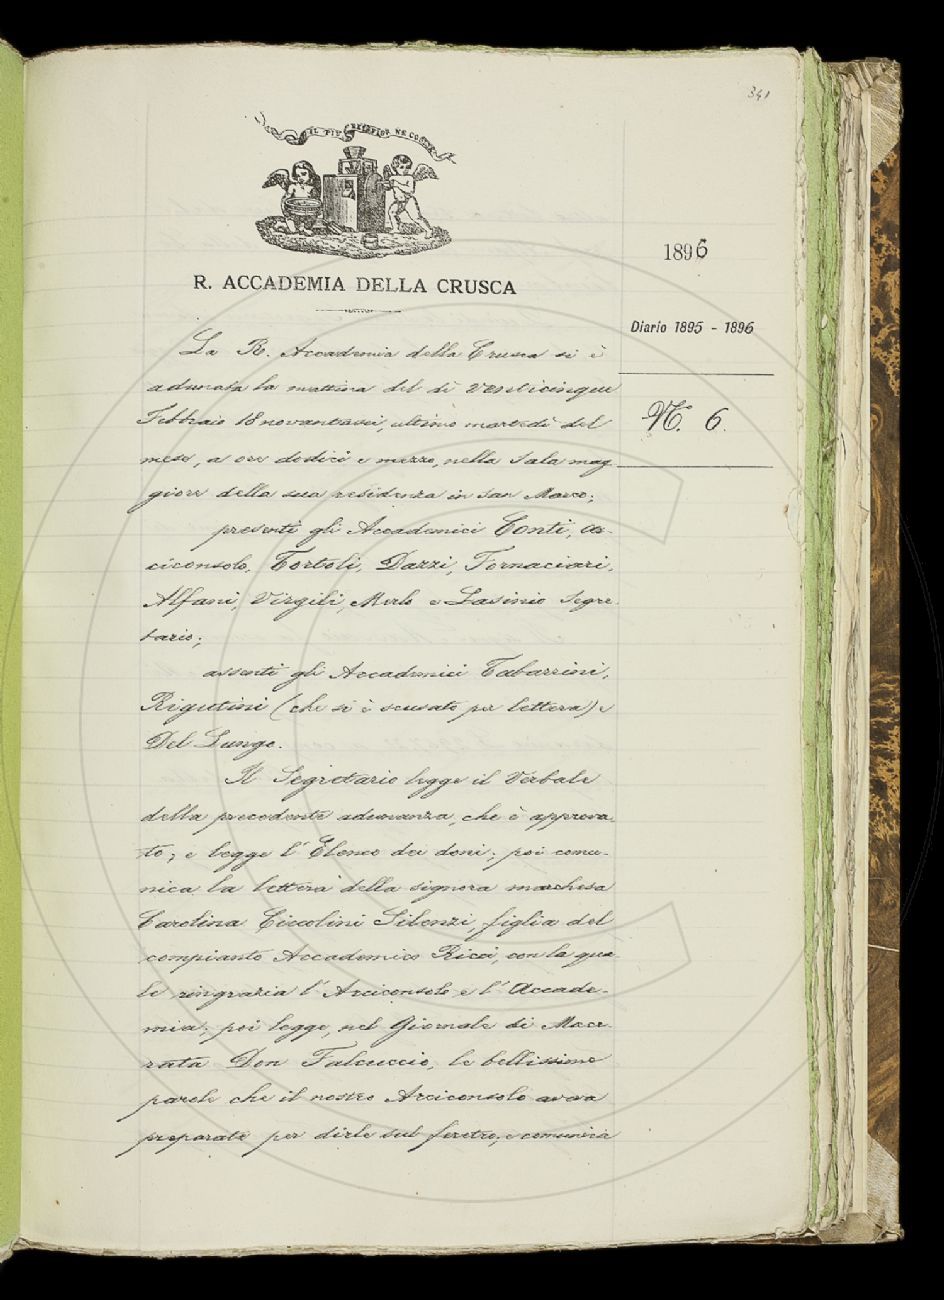 341
IL PIÙ BEL FIOR NE COGLIE
R. ACCADEMIA DELLA CRUSCA
1896
Diario 1895 - 1896
N. 6.
La R. Accademia della Crusca si è
adunata la mattina del dì venticinque
Febbraio 18novantasei, ultimo martedì del
mese, a ore dodici e mezzo, nella Sala mag
giore della sua residenza in San Marco;
presenti gli Accademici Conti, Ar-
ciconsolo, Tortoli, Dazzi, Fornaciari,
Alfani, Virgili, Merlo e Lasinio Segre
tario;
assenti gli Accademici Tabarrini,
Rigutini (che si è scusato per lettera) e
Del Lungo.
Il Segretario legge il Verbale
della precedente adunanza, che è approva
to; e legge l' Elenco dei doni; poi comu-
nica la lettera della signora marchesa
Carolina Ciccolini Silenzi, figlia del
compianto Accademico Ricci, con la qua
le ringrazia l' Arciconsolo e l' Accade-
mia; poi legge, nel Giornale di Mace-
rata Don Falcuccio, le bellissime
parole che il nostro Arciconsolo aveva
preparate per dirle sul feretro, e comunica